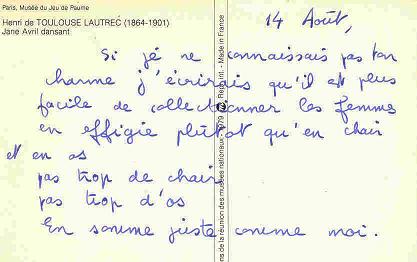 Paris, Musée du Jeu de Paume
Henri de TOULOUSE LAUTREC (1864-1901)
Jane Avril dansant
14 Août,
Si je ne connaissais pas ton
charme j'écrirais qu'il est plus
facile de collectionner les femmes
en effigie plutôt qu'en chair
et en os
pas trop de chair
pas trop d'os
En somme juste comme moi.
ns de la réunion des musées nationaux - 1979 Repro int. - Made in France